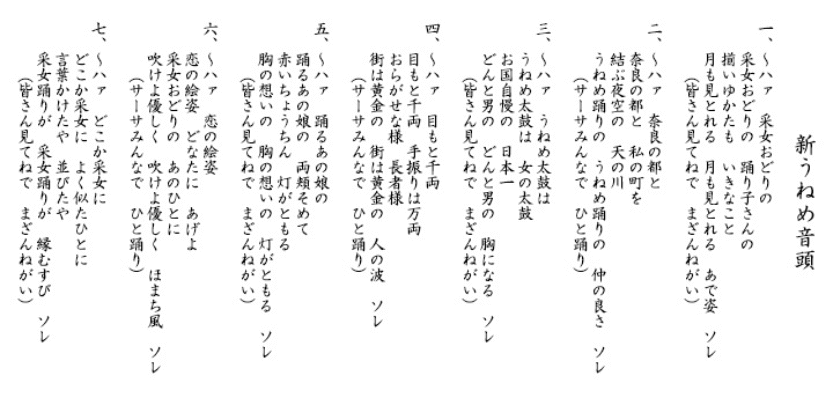 新うねめ音頭
一、〜ハァ　采女おどりの
采女おどりの　踊り子さんの
揃いゆかたも　いきなこと
月も見とれる　月も見とれる　あで姿　ソレ
（皆さん見てねで　まざんねがい）
二、〜ハァ　奈良の都と
奈良の都と　私の町を
結ぶ夜空の　天の川
うねめ踊りの　うねめ踊りの　仲の良さ　ソレ
（サーサみんなで　ひと踊り）
三、〜ハァ　うねめ太鼓は
うねめ太鼓は　女の太鼓
お国自慢の　日本一
どんと男の　どんと男の　胸になる　ソレ
（皆さん見てねで　まざんねがい）
四、〜ハァ　目もと千両
目もと千両　手振りは万両
おらがせな様　長者様
街は黄金の　街は黄金の　人の波　ソレ
（サーサみんなで　ひと踊り）
五、〜ハァ　踊るあの娘の
踊るあの娘の　両頬そめて
赤いちょうちん　灯がともる
胸の想いの　胸の想いの　灯がともる　ソレ
（皆さん見てねで　まざんねがい）
六、〜ハァ　恋の絵姿
恋の絵姿　どなたに　あげよ
采女おどりの　あのひとに
吹けよ優しく　吹けよ優しく　ほまち風　ソレ
（サーサみんなで　ひと踊り）
七、〜ハァ　どこか采女に
どこか采女に　よく似たひとに
言葉かけたや　並びたや
采女踊りが　采女踊りが　縁むすび　ソレ
（皆さん見てねで　まざんねがい）